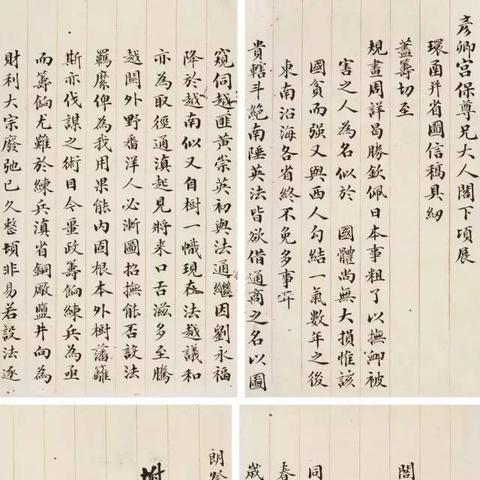 彦卿宫保尊兄大人閣下頃展
環函并省圖信稿具紉
藎籌切至
規畫周詳曷勝欽佩日本事粗了以撫卹被
害之人為名似於 國體尚無大損惟該
國貧而强又與西人勾結一氣數年之後
東南沿海各省終不免多事耳
貴轄斗絶南陲英法皆欲借通商之名以圖
窺伺越匪黃崇英初與法通繼因劉永福
降於越南似又自樹一幟現在法越議和
亦為取徑通滇起見將來口舌滋多至騰
越關外野番洋人必漸圖招撫能否設法
羈縻俾為我用果能內固根本外樹藩籬
斯亦伐謀之術目今要政籌餉練兵為亟
而籌餉尤難於練兵滇省銅廠鹽井向為
財利大宗廢弛已久整頓非易若設法逐
閤
同
春
歲
朗